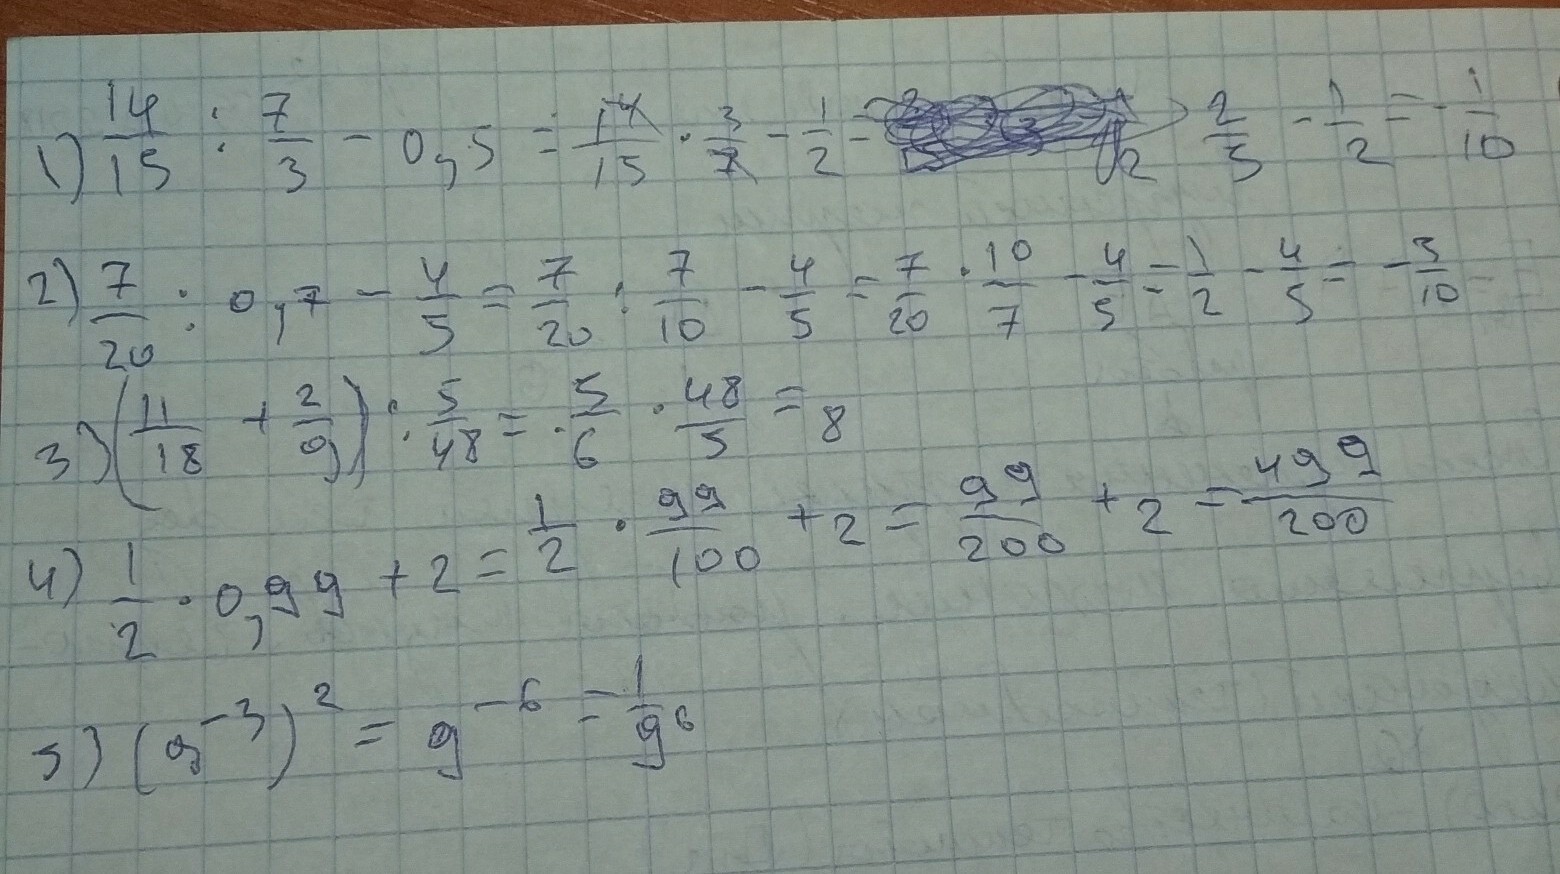 1) 14/15 : 7/3 - 0,5 = 14/15 · 3/7 - 1/2 = 2/5 - 1/2 = -1/10
2) 7/20 : 0,7 - 4/5 = 7/20 : 7/10 - 4/5 = 7/20 · 10/7 - 4/5 = 1/2 - 4/5 = -3/10
3) (11/18 + 2/9) : 5/48 = 5/6 · 48/5 = 8
4) 1/2 · 0,99 + 2 = 1/2 · 99/100 + 2 = 99/200 + 2 = 499/200
5) (9^-3)^2 = 9^-6 = 1/9^6